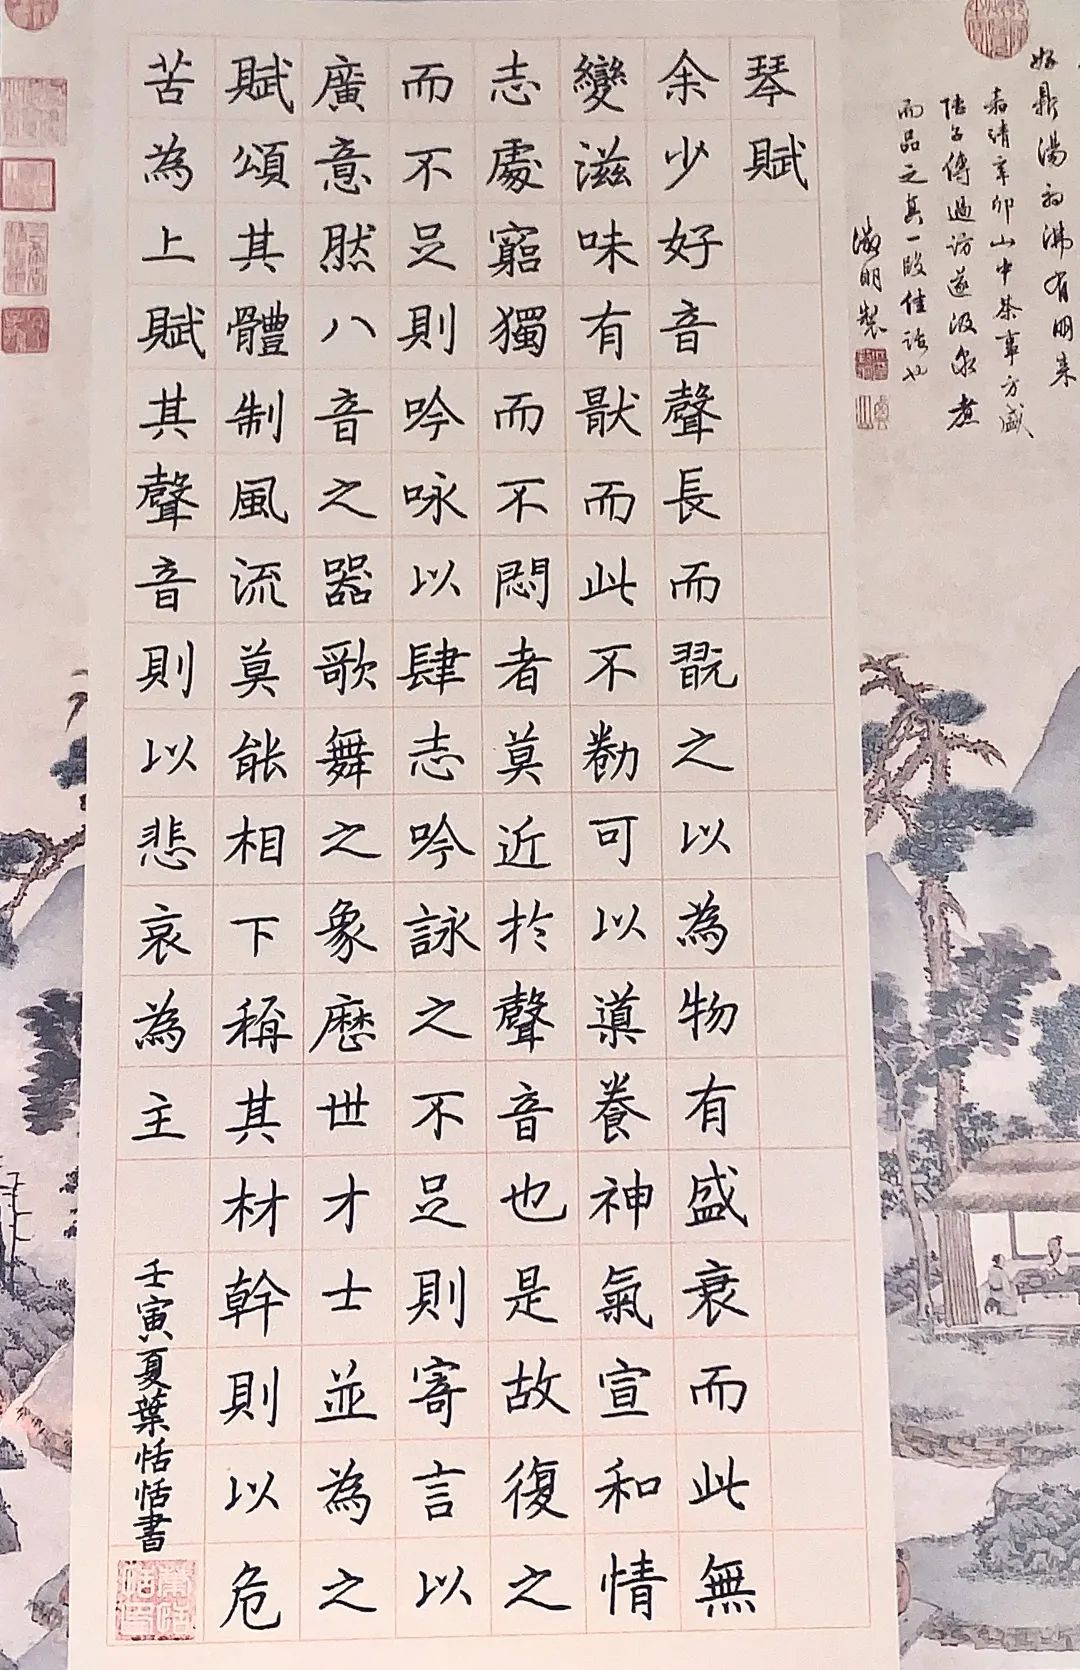 好鼎湯初沸有朋来
嘉靖辛卯山中茶事方盛
陸子傅過訪遂汲泉煮
而品之真一段佳話也
徵明製
琴賦
余少好音聲長而翫之以為物有盛衰而此無
變滋味有猒而此不勌可以導養神氣宣和情
志處窮獨而不悶者莫近於聲音也是故復之
而不足則吟咏以肆志吟詠之不足則寄言以
廣意然八音之器歌舞之象歷世才士並為之
賦頌其體制風流莫能相下稱其材幹則以危
苦為上賦其聲音則以悲哀為主
壬寅夏葉恬恬書
葉恬恬印